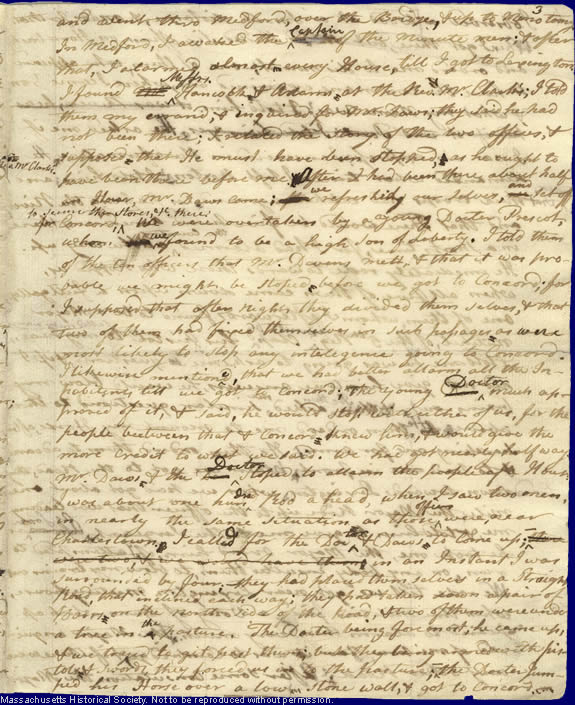 3
and went thro Medford, over the Bridge, & up to Menotomy
In Medford, I awaked the Captain of the minute men: & after
that, I alarmed almost every House, till I got to Lexington
I found Messrs. Hancock & Adams at the Rev. Mr. Clark's; I told
them my errand, & inquired for Mr. Daws; they said he had
not been there; I related the story of the two officers, &
supposed that He must have been stopped, as he ought to
have been there before me. After I had been there about half
an Hour, Mr. Daws came; we refreshid our selves, and set off
to secure the Stores, &c. there
for Concord, We were overtaken by a young Docter Prescot,
whom we found to be a high Son of Liberty. I told them
of the ten officers that Mr. Devens mett, & that it was pro-
bable we might be stoped before we got to Concord; for
I supposed that after Night, they divided them selves, & that
two of them had fixed themselves in such passages as were
most likely to stop any intelegence going to Concord.
I likewise mentioned, that we had better allarm all the In-
habitents till we got to Concord; the young Doctor much ap-
proved of it, & said, he would stop with either of us, for the
people between that & Concord knew him, & would give the
more credit to what we said. We had got nearly half way
Mr Daws & the Doctor stoped to allarm the people of a House
I was about one hundred Rod a head, when I saw two men,
in nearly the same situation as those officers were, near
Charlestown. I called for the Doctor & Daws to come up;
in an Instant I was
surrounded by four; they had placed them selves in a Straight
Road, that inclined each way; they had taken down a pair of
Bars on the North side of the Road, & two of them were under
a tree in the pasture. The Docter being foremost, he came up;
& we tryed to git past them; but they being armed with pis-
tols & swords, they forced us in to the pasture; the Docter jum-
ped his Horse over a low Stone wall, & got to Concord.
Massachusetts Historical Society. Not to be reproduced without permission.